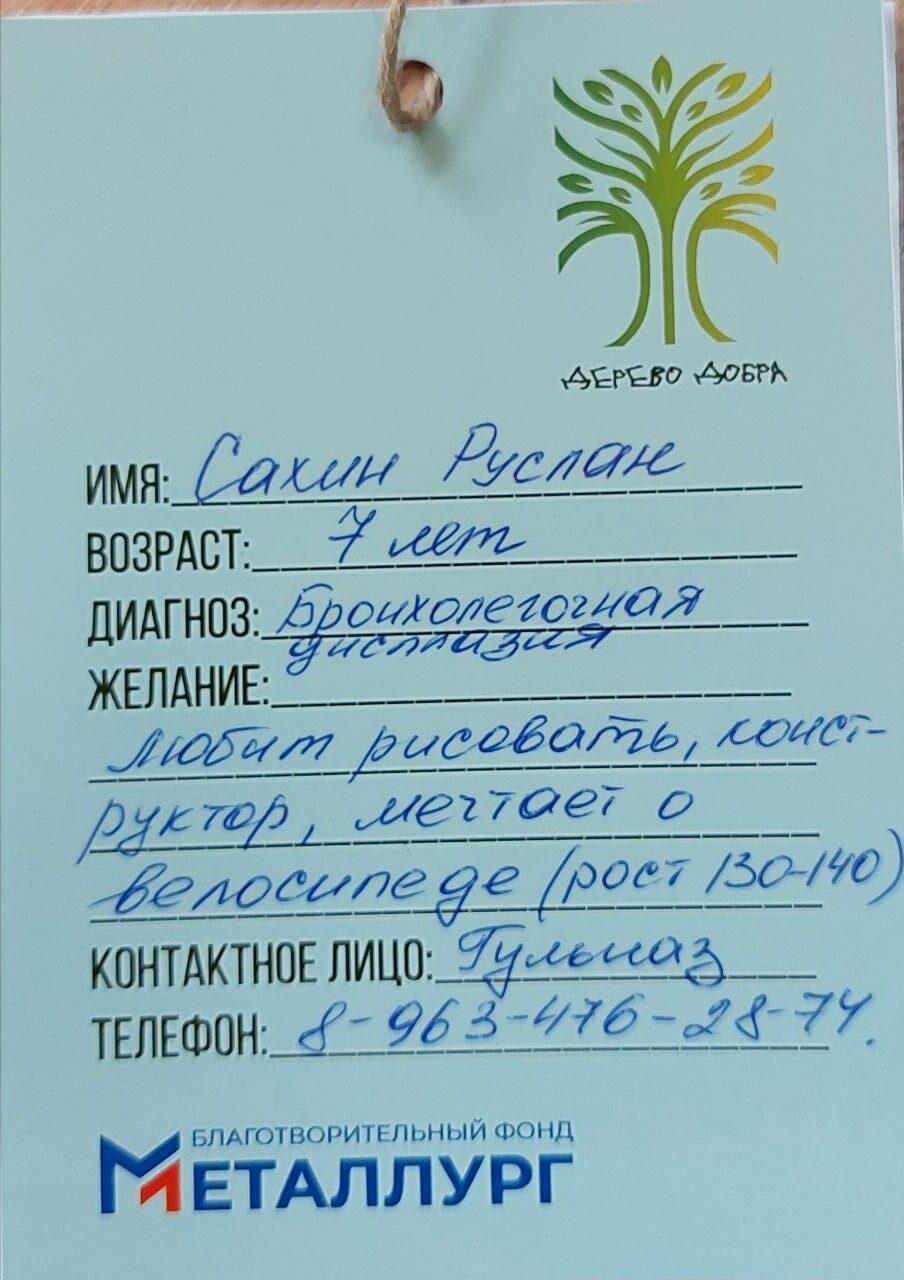 ДЕРЕВО ДОБРА
ИМЯ: Сахин Руслан
ВОЗРАСТ: 7 лет
ДИАГНОЗ: Бронхолегочная
дисплазия
ЖЕЛАНИЕ:
любит рисовать, конст-
руктор, мечтает о
велосипеде (рост 130-140)
КОНТАКТНОЕ ЛИЦО: Гульназ
ТЕЛЕФОН: 8-963-476-28-74.
БЛАГОТВОРИТЕЛЬНЫЙ ФОНД
МЕТАЛЛУРГ